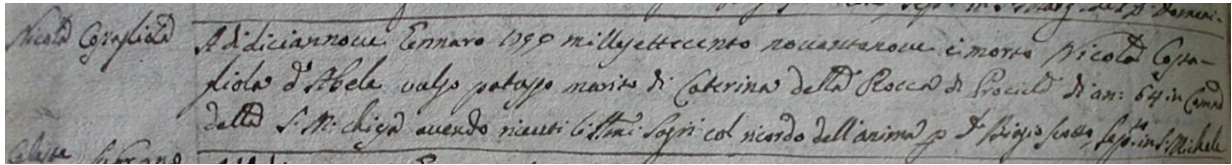 Nicola Costagliola
A di diciannove Gennaro 1799 millesettecento novantanove è morto Nicola Costa-
gliola d'Abele vulgo patasso marito di Caterina della Rocca di Procida di an: 64 in Comne
della S. M: Chiesa avendo ricevuti li SSmi Sagri col ricordo dell'anima p D. Biagio Scotto, Septo in S: Michele